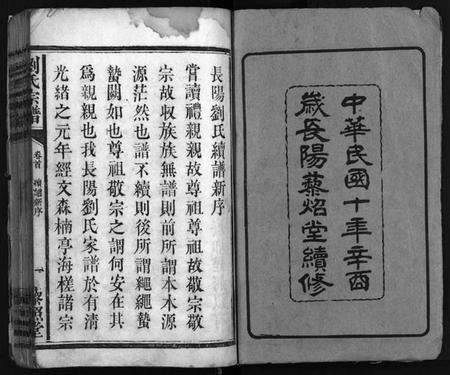 中華民國十年辛酉
歲長陽藜炤堂續修
長陽劉氏續譜新序
嘗讀禮親親故尊祖尊祖故敬宗敬
宗故收族族無譜則前所謂本本源
源茫然也譜不續則後所謂繩繩蟄
蟄闕如也尊祖敬宗之謂何安在其
為親親也我長陽劉氏家譜於有清
光緒之元年經文森楠亭海槎諸宗
劉氏宗譜
卷首
續譜新序
一
藜照堂